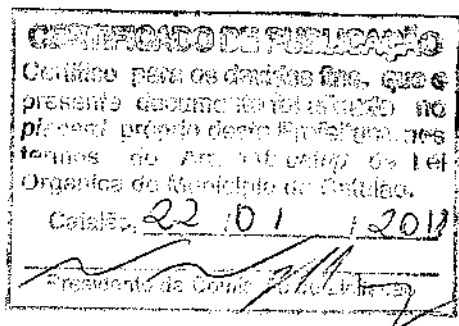 CERTIFICADO DE PUBLICAÇÃO
Certifico para os devidos fins, que o
presente documento foi afixado no
placard próprio desta Prefeitura, nos
termos do Art. da Lei
Orgânica do Município de Catalão.
Catalão, 22 / 01 /
Presidente da